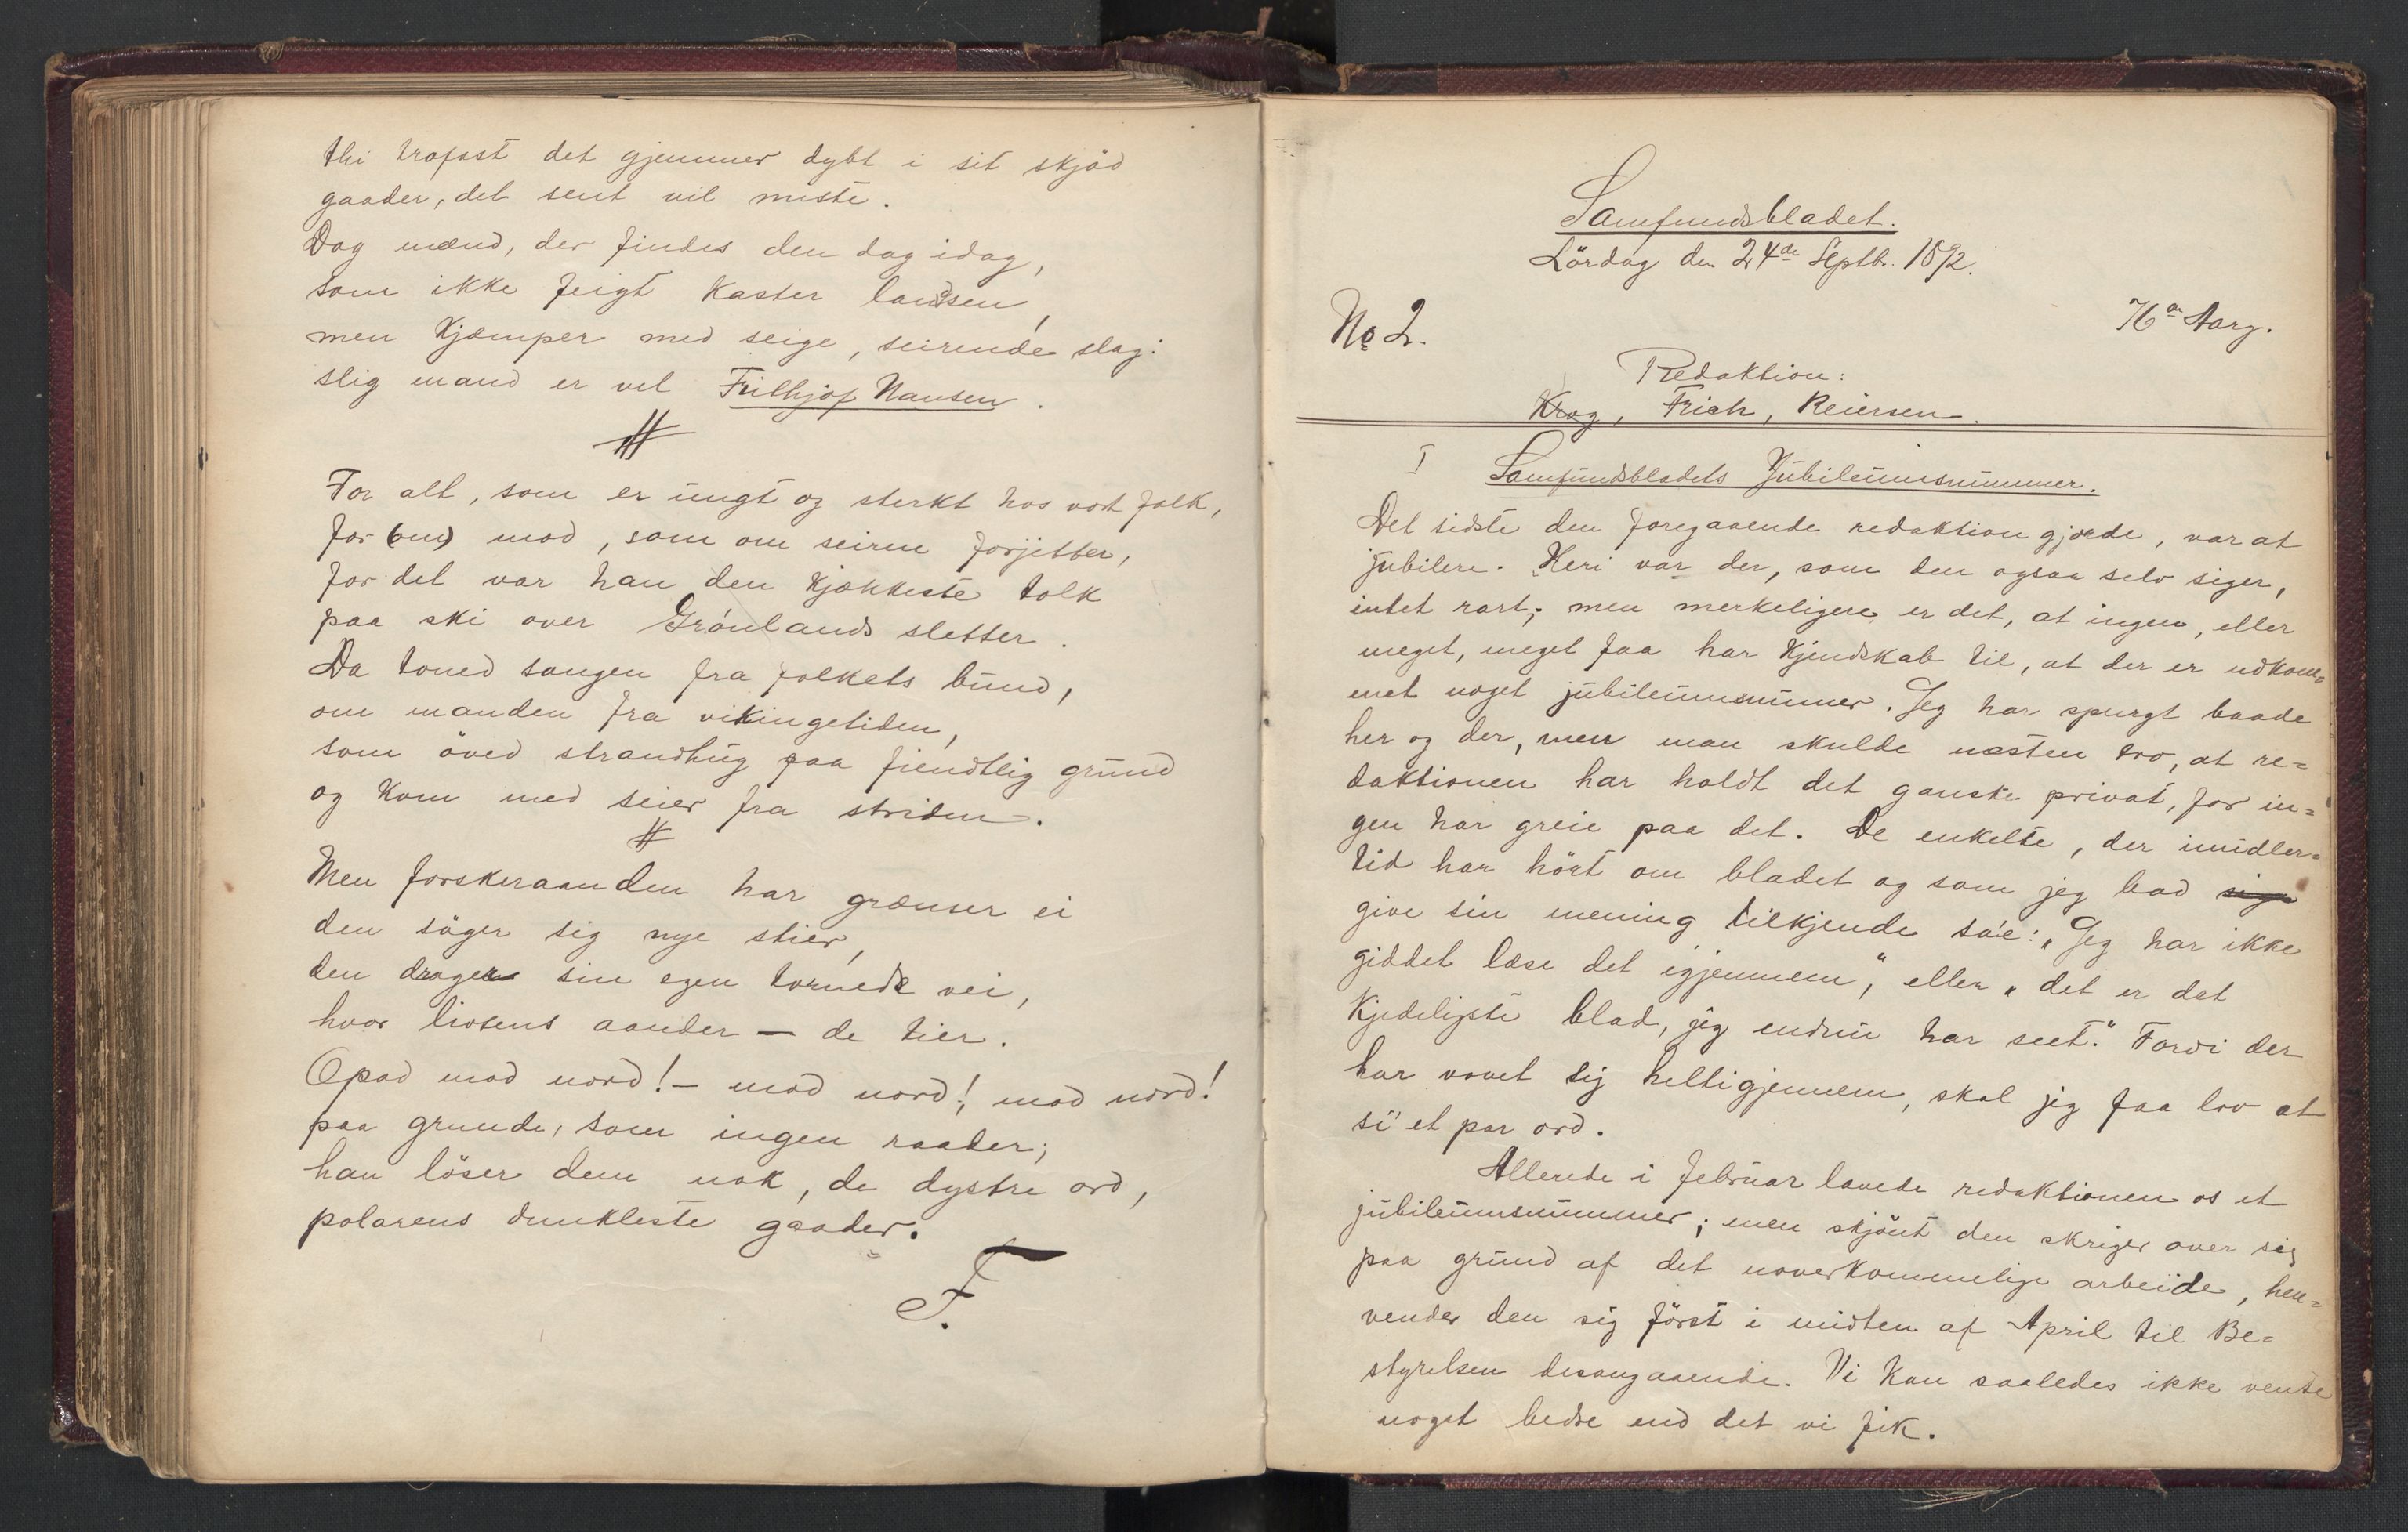 thi trofast det gjemmer dybt i sit skjød
gaader, det sent vil miste.
Dog mænd, der findes den dag idag,
som ikke feigt kaster landsen,
men kjæmper med seige, seirende slag:
slig mand er vel Frithjof Nansen.
For alt, som er ungt og sterkt hos vort folk,
for (en) mod, som om seiren forjetter,
for det var han den kjækkeste tolk
paa ski over Grönlands sletter.
Da toned sangen fra folkets bund,
om manden fra vikingetiden,
som öved strandhug paa fiendtlig grund
og kom med seier fra striden.
Men forskeraanden har grænser ei
den söger sig nye stier,
den drager sin egen tornede vei,
hvor livsens aander — de tier.
Opad mod nord! – mod nord! mod nord!
paa grunde, som ingen raader;
han löser dem nok, de dystre ord,
polarens dunkleste gaader.
F.
Samfundsbladet.
Lördag den 24de Septbr. 1892.
No 2.
76de Aarg.
Redaktion:
Krag, Frich, Reiersen.
I Samfundsbladets Jubileumsnummer.
Det sidste den foregaaende redaktion gjorde, var at
jubilere. Heri var der, som den ogsaa selv siger,
intet rart; men merkeligere er det, at ingen, eller
meget, meget faa har kjendskab til, at der er udkom=
met noget jubileumsnummer. Jeg har spurgt baade
her og der, men man skulde næsten tro, at re=
daktionen har holdt det ganske privat, for in=
gen har greie paa det. De enkelte, der imidler=
tid har hört om bladet og som jeg bad sige
give sin mening tilkjende sa'e: „Jeg har ikke
giddet læse det igjennem," eller „det er det
kjedeligste blad, jeg endnu har seet." Fordi der
har vovet sig heltigjennem, skal jeg faa lov at
si' et par ord.
Allerede i februar lavede redaktionen os et
jubileumsnummer; men skjönt den skriger over sig
paa grund af det uoverkommelige arbeide, hen=
vender den sig först i midten af April til Be=
styrelsen desangaaende. Vi kan saaledes ikke vente
noget bedre end det vi fik.